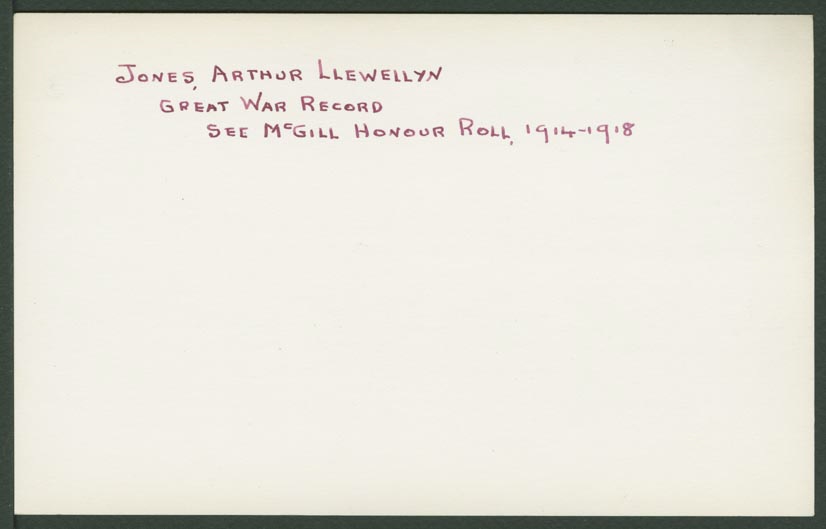 Jones, Arthur Llewellyn
Great War Record
See McGill Honour Roll, 1914-1918